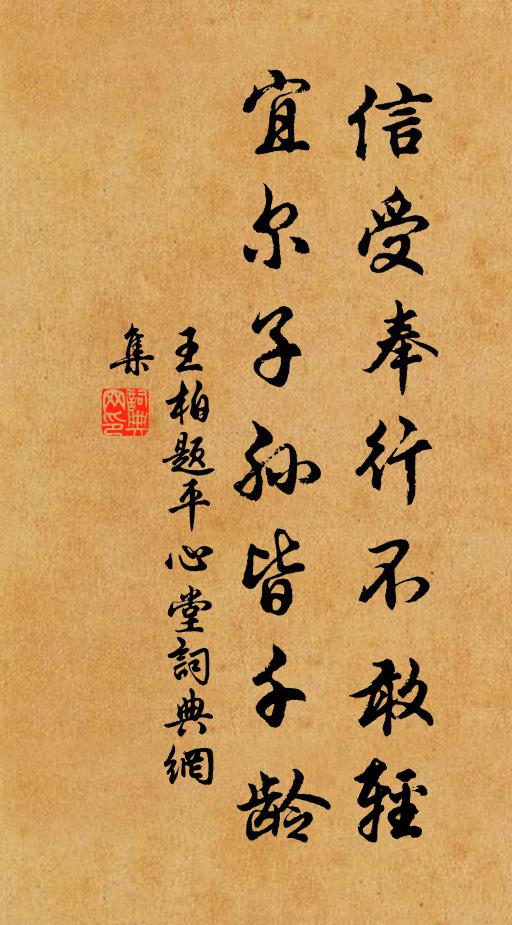 信受奉行不敢輕
宜尔子孙皆千龄
王柏题平心堂詞典網
集
詞典网印